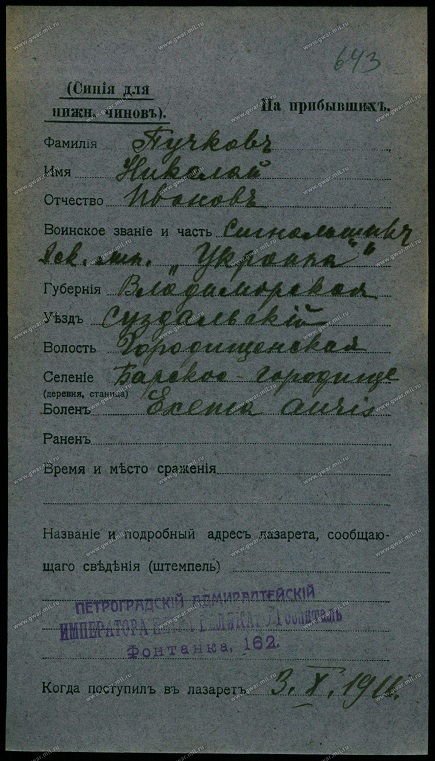 643
(Синія для
нижн. чиновъ).
На прибывшихъ.
Фамилія Пучковъ
Имя Николай
Отчество Ивановъ
Воинское званіе и часть Сигнальщикъ
"Украина"
Губернія Владимирская
Уѣздъ Суздальскій
Волость Городищенская
Селеніе Барское городище
(деревня, станица)
Боленъ Exema auris
Раненъ
Время и мѣсто сраженія
Названіе и подробный адресъ лазарета, сообщаю-
щаго свѣдѣнія (штемпель)
ПЕТРОГРАДСКІЙ АДМИРАЛТЕЙСКІЙ
ИМПЕРАТОРА Госпиталь
Фонтанка, 162.
Когда поступилъ въ лазаретъ 3. X.
www.gwar.mil.ru